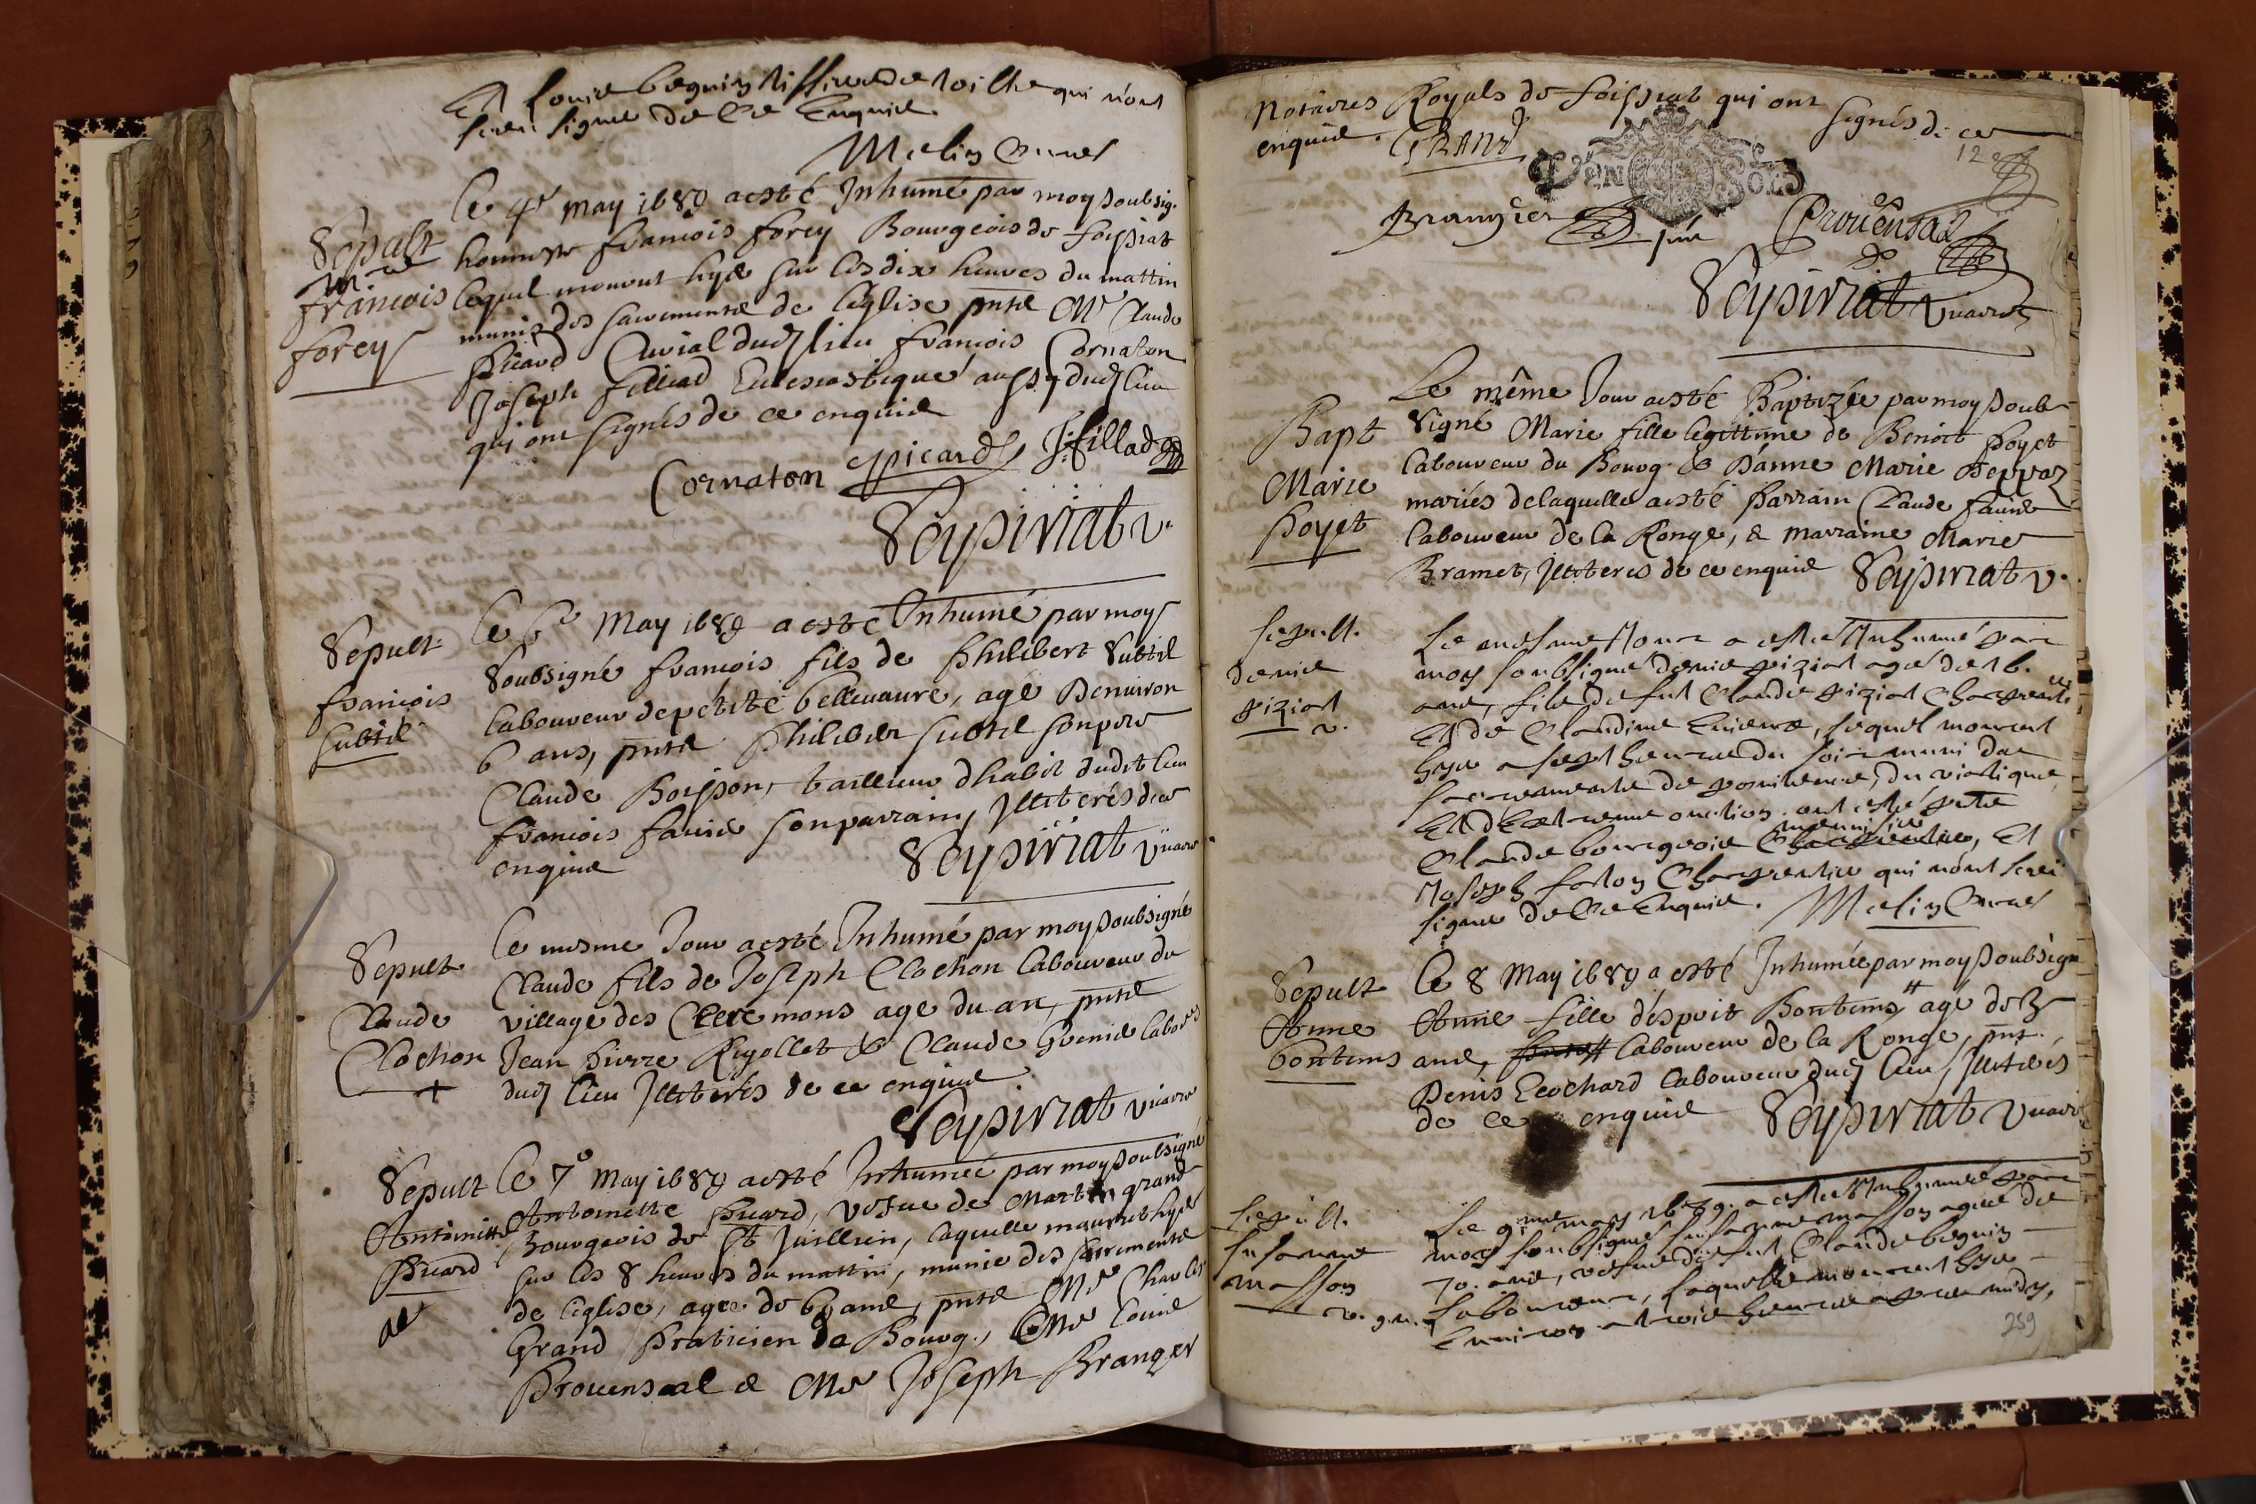 Et Louis beguin tissier de toille qui n'ont
sceu signer de ce Enquis.
Melin Curé
Sepult
Mre
francois
forey
Le 4e may 1689 a esté Inhumé par moy soubsig.
honneste francois forey Bourgeois de foissiat
lequel mourut hyer sur les dix heures du mattin
munis des sacrements de l'église pnts Mre Claude
Picard Curial dud lieu francois Cornaton
Joseph filliad Eclesiastique aussy dud lieu
qui ont signés de ce enquis
Cornaton CPicard J: fillad
Veysiriat v.
Sepult
francois
subtil
Le 6e May 1689 a esté Inhumé par moy
Soubsigné francois fils de Philibert Subtil
laboureur de petite bellevavre, agé Denuiron
6 ans, pnts Philiber subtil son pere
Claude Boisson, tailleur dhabit dudt lieu
francois favie son parrain, Illiterés de ce
enquis Veysiriat vicaire
Sepult
Claude
Clochon
Le mesme Jour a esté Inhumé par moy soubsigné
Claude fils de Joseph Clochon laboureur du
village des Cleremons age du an, pnts
Jean Pierre Rigollet & Claude Grenie labors
dud lieu Illiterés de ce enquis
Veysiriat vicaire
Sepult
Antoinette
Picard
Le 7e May 1689 a esté Inhumée par moy soubsigné
Antoinette Picard, vefue de Martin grand
Bourgeois de St Juillien, laquelle mourut hyer
sur les 8 heures du mattin, munie des sacrements
de l'église, agee de ans, pnts Mre Charles
Grand Praticien de Bourg, Mre Louis
Prouensal & Mre Joseph Branger
Notaires Royals de foissiat qui ont signés de ce
enquis. GRAND
12
VEN SOLS
Brangier pnt Prouensal
Veysiriat vicaire
Bapt
Marie
Poyet
Le même Jour a esté Baptizée par moy soub-
signé Marie fille legittime de Benoit Poyet
laboureur du Bourg & D'anne Marie
mariés de laquelle a esté Parrain Claude favie
laboureur de la Ronge, & marraine Marie
Bramet, Illiteres de ce enquis Veysiriat v.
Sepult.
denis
piziat
v.
Le mesme Jour a esté Inhumé par
moy soubsigné denis piziat agé de 16.
ans, fils de fut Claude piziat Charpentie
Et de Claudine, lequel mourut
hyer a sept heures du soir muni des
sacrements de penitence, du viatique
Et d'Extreme onction. ont esté pnts
Claude bourgeois menuisier, Et
Joseph foston Charpentier qui n'ont sceu
signer de ce Enquis. Melin Curé
Sepult
Anne
bontems
Le 8 May 1689 a esté Inhumée par moy soubsigné
Anne fille d'espoit Bontems agé de 3
ans, laboureur de la Ronge, pnt.
Denis Ecochard laboureur dud lieu, Illiterés
de ce enquis Veysiriat vicaire
Sepult.
Susanne
Masson
Le 9me may 1689. a esté Inhumé par
moy soubsigné susanne masson agée de
70. ans, vefue de fut Claude beguin
laboureur, laquelle mourut hyer
Enuiron trois heures apres midy,
259